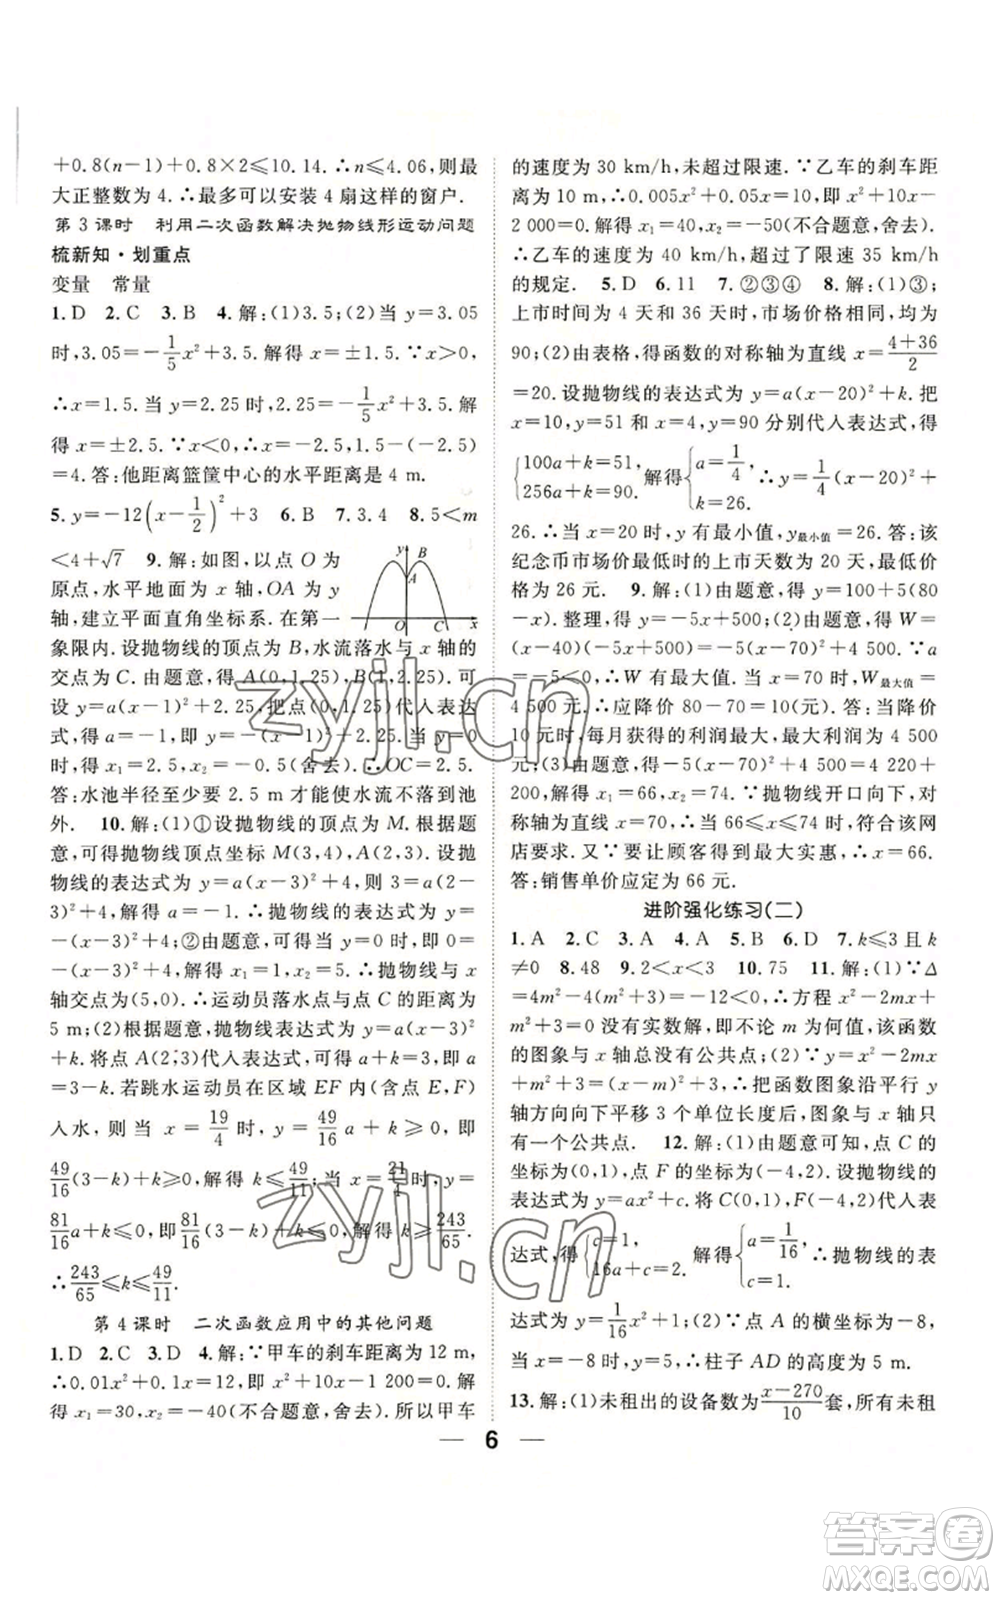 +0.8(n-1)+0.8×2≤10.14.∴n≤4.06,则最
大正整数为 4.∴最多可以安装 4 扇这样的窗户.
第 3 课时 利用二次函数解决抛物线形运动问题
梳新知·划重点
变量 常量
1.D 2.C 3.B 4.解:(1)3.5;(2)当 y=3.05
时,3.05=-1/5x²+3.5.解得 x=±1.5.∵x>0,
∴x=1.5.当 y=2.25 时,2.25=-1/5x²+3.5.解
得 x=±2.5.∵x<0,∴x=-2.5,1.5-(-2.5)
=4.答:他距离篮筐中心的水平距离是 4 m.
5.y=-12(x-1/2)²+3 6.B 7.3.4 8.5<m
<4+√7 9.解:如图,以点 O 为
原点,水平地面为 x 轴,OA 为 y
轴,建立平面直角坐标系.在第一
象限内.设抛物线的顶点为 B,水流落水与 x 轴的
交点为 C.由题意,得 A(0,1.25),B(1,2.25).可
设 y=a(x-1)²+2.25.把点(0,1.25)代入表达
式,得 a=-1.∴y=-(x-1)²+2.25.当 y=0
时,得 x₁=2.5,x₂=-0.5(舍去).∴OC=2.5.
答:水池半径至少要 2.5 m才能使水流不落到池
外. 10.解:(1)①设抛物线的顶点为 M.根据题
意,可得抛物线顶点坐标 M(3,4),A(2,3).设抛
物线的表达式为 y=a(x-3)²+4,则 3=a(2-
3)²+4,解得 a=-1.∴抛物线的表达式为 y=
-(x-3)²+4;②由题意,可得当 y=0 时,0=
-(x-3)²+4,解得 x₁=1,x₂=5.∴抛物线与 x
轴交点为(5,0).∴运动员落水点与点 C 的距离为
5 m;(2)根据题意,抛物线的表达式为 y=a(x-3)²
+k.将点 A(2,3)代入表达式,可得 a+k=3,即 a
=3-k.若跳水运动员在区域 EF 内(含点 E,F)
入水,则当 x=19/4 时,y=49/16a+k≥0,即
49/16(3-k)+k≥0,解得 k≤49/11;当 x=21/4 时,y=
81/16a+k≤0,即81/16(3-k)+k≤0,解得 k≥243/65.
∴243/65≤k≤49/11.
第 4 课时 二次函数应用中的其他问题
1.D 2.C 3.D 4.解:∵甲车的刹车距离为 12 m,
∴0.01x²+0.1x=12,即 x²+10x-1 200=0.解
得 x₁=30,x₂=-40(不合题意,舍去).所以甲车
的速度为 30 km/h,未超过限速.∵乙车的刹车距
离为 10 m,∴0.005x²+0.05x=10,即 x²+10x-
2 000=0.解得 x₁=40,x₂=-50(不合题意,舍去).
∴乙车的速度为 40 km/h,超过了限速 35 km/h
的规定. 5.D 6.11 7.②③④ 8.解:(1)③;
上市时间为 4 天和 36 天时,市场价格相同,均为
90;(2)由表格,得函数的对称轴为直线 x=(4+36)/2
=20.设抛物线的表达式为 y=a(x-20)²+k.把
x=10,y=51 和 x=4,y=90 分别代入表达式,得
{100a+k=51, 256a+k=90. 解得{a=1/4, k=26. ∴y=1/4(x-20)²+
26.∴当 x=20 时,y 有最小值,y最小值=26.答:该
纪念币市场价最低时的上市天数为 20 天,最低价
格为 26 元. 9.解:(1)由题意,得 y=100+5(80
-x).整理,得 y=-5x+500;(2)由题意,得 W=
(x-40)(-5x+500)=-5(x-70)²+4 500.∵a
=-5<0,∴W 有最大值.当 x=70 时,W最大值=
4 500.∴应降价 80-70=10(元).答:当降价
10 元时,每月获得的利润最大,最大利润为 4 500
元;(3)由题意,得 -5(x-70)²+4 500=4 220+
200.解得 x₁=66,x₂=74.∵抛物线开口向下,对
称轴为直线 x=70,∴当 66≤x≤74 时,符合该网
店要求.又∵要让顾客得到最大实惠,∴x=66.
答:销售单价应定为 66 元.
进阶强化练习(二)
1.A 2.C 3.A 4.A 5.B 6.D 7.k≤3 且 k
≠0 8.48 9.2<x<3 10.75 11.解:(1)∵Δ
=4m²-4(m²+3)=-12<0,∴方程 x²-2mx+
m²+3=0 没有实数解,即不论 m 为何值,该函数
的图象与 x 轴总没有公共点;(2)∵y=x²-2mx
+m²+3=(x-m)²+3,∴把函数图象沿平行 y
轴方向向下平移 3 个单位长度后,图象与 x 轴只
有一个公共点. 12.解:(1)由题意可知,点 C 的
坐标为(0,1),点 F 的坐标为(-4,2).设抛物线的
表达式为 y=ax²+c.将 C(0,1),F(-4,2)代入表
达式,得{c=1, 16a+c=2. 解得{a=1/16, c=1. ∴抛物线的表
达式为 y=1/16x²+1;(2)∵点 A 的横坐标为-8,
∴当 x=-8 时,y=5.∴柱子 AD 的高度为 5 m.
13.解:(1)未租出的设备数为(x-270)/10套,所有未租
6
y B A O C x
zyjl.cn
zyjl.cn
答案圈
MXQE.COM